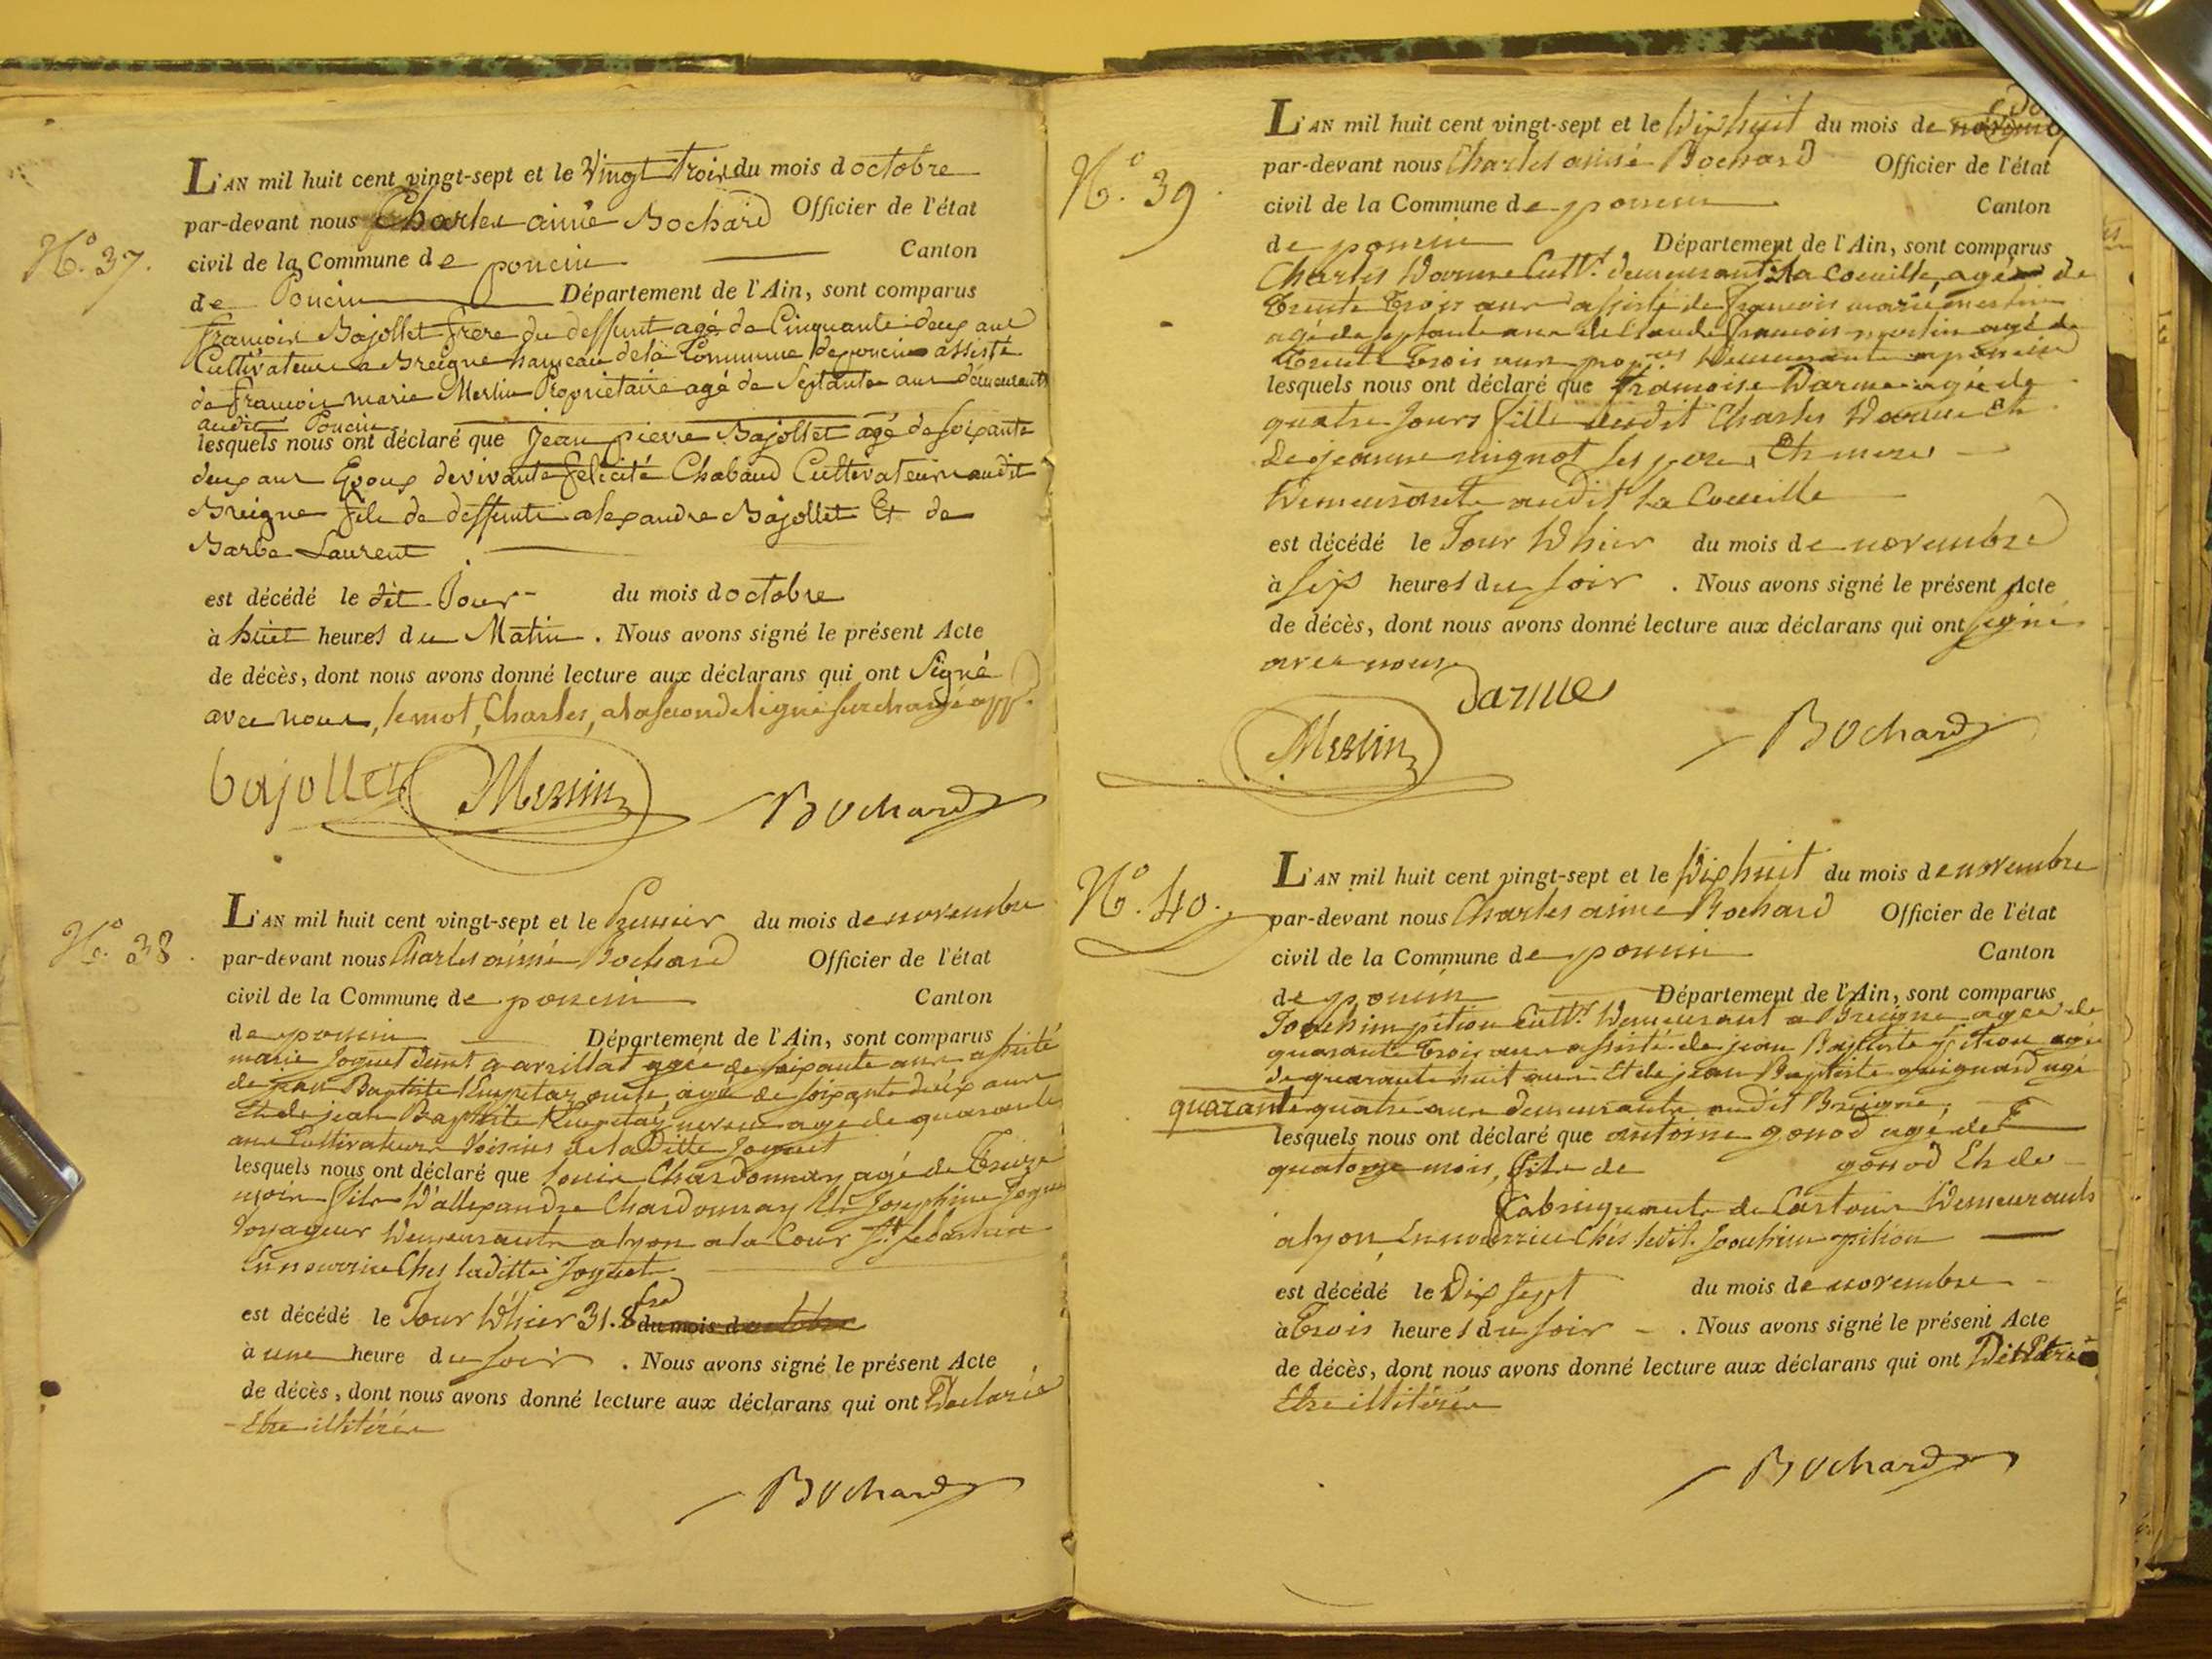 N.º 37.
L'AN mil huit cent vingt-sept et le Vingt Trois du mois doctobre
par-devant nous Charles aimé Bochard Officier de l'état
civil de la Commune de poncin Canton
de Poncin Département de l'Ain, sont comparus
francois Bajollet frere du deffunt agé de Cinquante deux ans
Cultivateur a Breigne hameau dela Commune de poncin assisté
de francois marie Merlin Propriétaire agé de Septante ans demeurant
audit Poncin
lesquels nous ont déclaré que Jean pierre Bajollet agé de soixante
deux ans Epoux de vivante felicité Chabaud Cultivateur audit
Breigne fils de deffunts alexandre Bajollet Et de
Barbe Laurent
est décédé le dit Jour du mois doctobre
à huit heures du Matin. Nous avons signé le présent Acte
de décès, dont nous avons donné lecture aux déclarans qui ont Signé
avec nous, lemot, Charles, alaseconde ligne surchargé app.
bajollet Merlin Bochard
N.º 38.
L'AN mil huit cent vingt-sept et le Premier du mois de novembre
par-devant nous Charles aimé Bochard Officier de l'état
civil de la Commune de poncin Canton
de poncin Département de l'Ain, sont comparus
marie Joguet dunt a avrillat agée de soixante ans assisté
de jean Baptiste oncle, agé de soixante deux ans
Et de jean Baptiste neveu agé de quarante
ans Cultivateurs Voisins de la Ditte Joguet
lesquels nous ont déclaré que louis Chardonnay agé de Treize
mois fils D'allexandre Chardonnay Et Josephine
Voyageur Demeurants a lyon a la Cour St. sebastien
En nourrice Ches laditte Joguet
est décédé le Jour D'hier 31. 8bre du mois doctobre
à une heure du soir. Nous avons signé le présent Acte
de décès, dont nous avons donné lecture aux déclarans qui ont Déclarés
Etre illitérés
Bochard
N.º 39.
L'AN mil huit cent vingt-sept et le Dix huit du mois de
par-devant nous Charles aimé Bochard Officier de l'état
civil de la Commune de poncin Canton
de poncin Département de l'Ain, sont comparus
Charles Darme Cultr. demeurant a La Coeuille, agé de
Trente Trois ans assisté de francois marie merlin
agé de septante ans de Claude francois merlin agé de
Trente Trois ans propres Demeurants a poncin
lesquels nous ont déclaré que francoise Darme agée de
quatre Jours fille dudit Charles Darme Et
de jeanne mignot ses pere Et mere
Demeurants audit La Coeuille
est décédé le Jour D'hier du mois de novembre
à six heures du soir. Nous avons signé le présent Acte
de décès, dont nous avons donné lecture aux déclarans qui ont signé
avec nous
Darme
Merlin Bochard
N.º 40.
L'AN mil huit cent vingt-sept et le Dix huit du mois de novembre
par-devant nous Charles aimé Bochard Officier de l'état
civil de la Commune de poncin Canton
de poncin Département de l'Ain, sont comparus
Joachim pition Cultr. Demeurant a Breigne agé de
quarante Trois ans assisté de jean Baptiste pition agé
de quarante huit ans Et de jean Baptiste guignard agé
quarante quatre ans demeurants audit Breigne,
lesquels nous ont déclaré que antoine gonod agé de
quatorze mois, fils de gonod Et de
fabriquants de Cartons Demeurants
a lyon En nourrice Chés ledit Joachim pition
est décédé le Dix sept du mois de novembre
à Trois heures du soir. Nous avons signé le présent Acte
de décès, dont nous avons donné lecture aux déclarans qui ont
Etre illitérés
Bochard